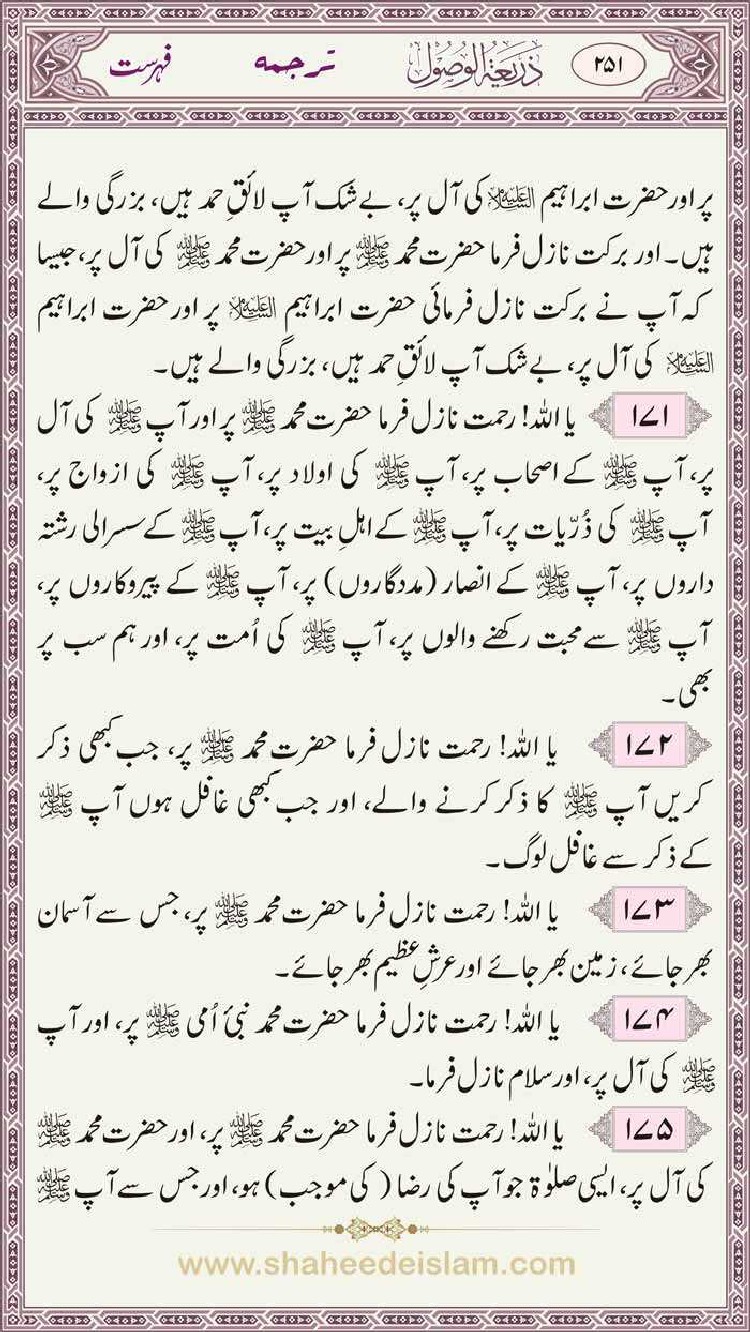 ۲۵۱ ذریعۃ الوصول ترجمہ فہرست
پر اور حضرت ابراہیم علیہ السلام کی آل پر، بے شک آپ لائقِ حمد ہیں، بزرگی والے
ہیں۔ اور برکت نازل فرما حضرت محمد ﷺ پر اور حضرت محمد ﷺ کی آل پر، جیسا
کہ آپ نے برکت نازل فرمائی حضرت ابراہیم علیہ السلام پر اور حضرت ابراہیم
علیہ السلام کی آل پر، بے شک آپ لائقِ حمد ہیں، بزرگی والے ہیں۔
۱۷۱ یا اللہ! رحمت نازل فرما حضرت محمد ﷺ پر اور آپ ﷺ کی آل
پر، آپ ﷺ کے اصحاب پر، آپ ﷺ کی اولاد پر، آپ ﷺ کی ازواج پر،
آپ ﷺ کی ذُرّیات پر، آپ ﷺ کے اہلِ بیت پر، آپ ﷺ کے سسرالی رشتہ
داروں پر، آپ ﷺ کے انصار (مددگاروں) پر، آپ ﷺ کے پیروکاروں پر،
آپ ﷺ سے محبت رکھنے والوں پر، آپ ﷺ کی اُمت پر، اور ہم سب پر
بھی۔
۱۷۲ یا اللہ! رحمت نازل فرما حضرت محمد ﷺ پر، جب کبھی ذکر
کریں آپ ﷺ کا ذکر کرنے والے، اور جب کبھی غافل ہوں آپ ﷺ
کے ذکر سے غافل لوگ۔
۱۷۳ یا اللہ! رحمت نازل فرما حضرت محمد ﷺ پر، جس سے آسمان
بھر جائے، زمین بھر جائے اور عرشِ عظیم بھر جائے۔
۱۷۴ یا اللہ! رحمت نازل فرما حضرت محمد نبیٔ اُمی ﷺ پر، اور آپ
ﷺ کی آل پر، اور سلام نازل فرما۔
۱۷۵ یا اللہ! رحمت نازل فرما حضرت محمد ﷺ پر، اور حضرت محمد ﷺ
کی آل پر، ایسی صلوٰۃ جو آپ کی رضا (کی موجب) ہو، اور جس سے آپ ﷺ
www.shaheedeislam.com